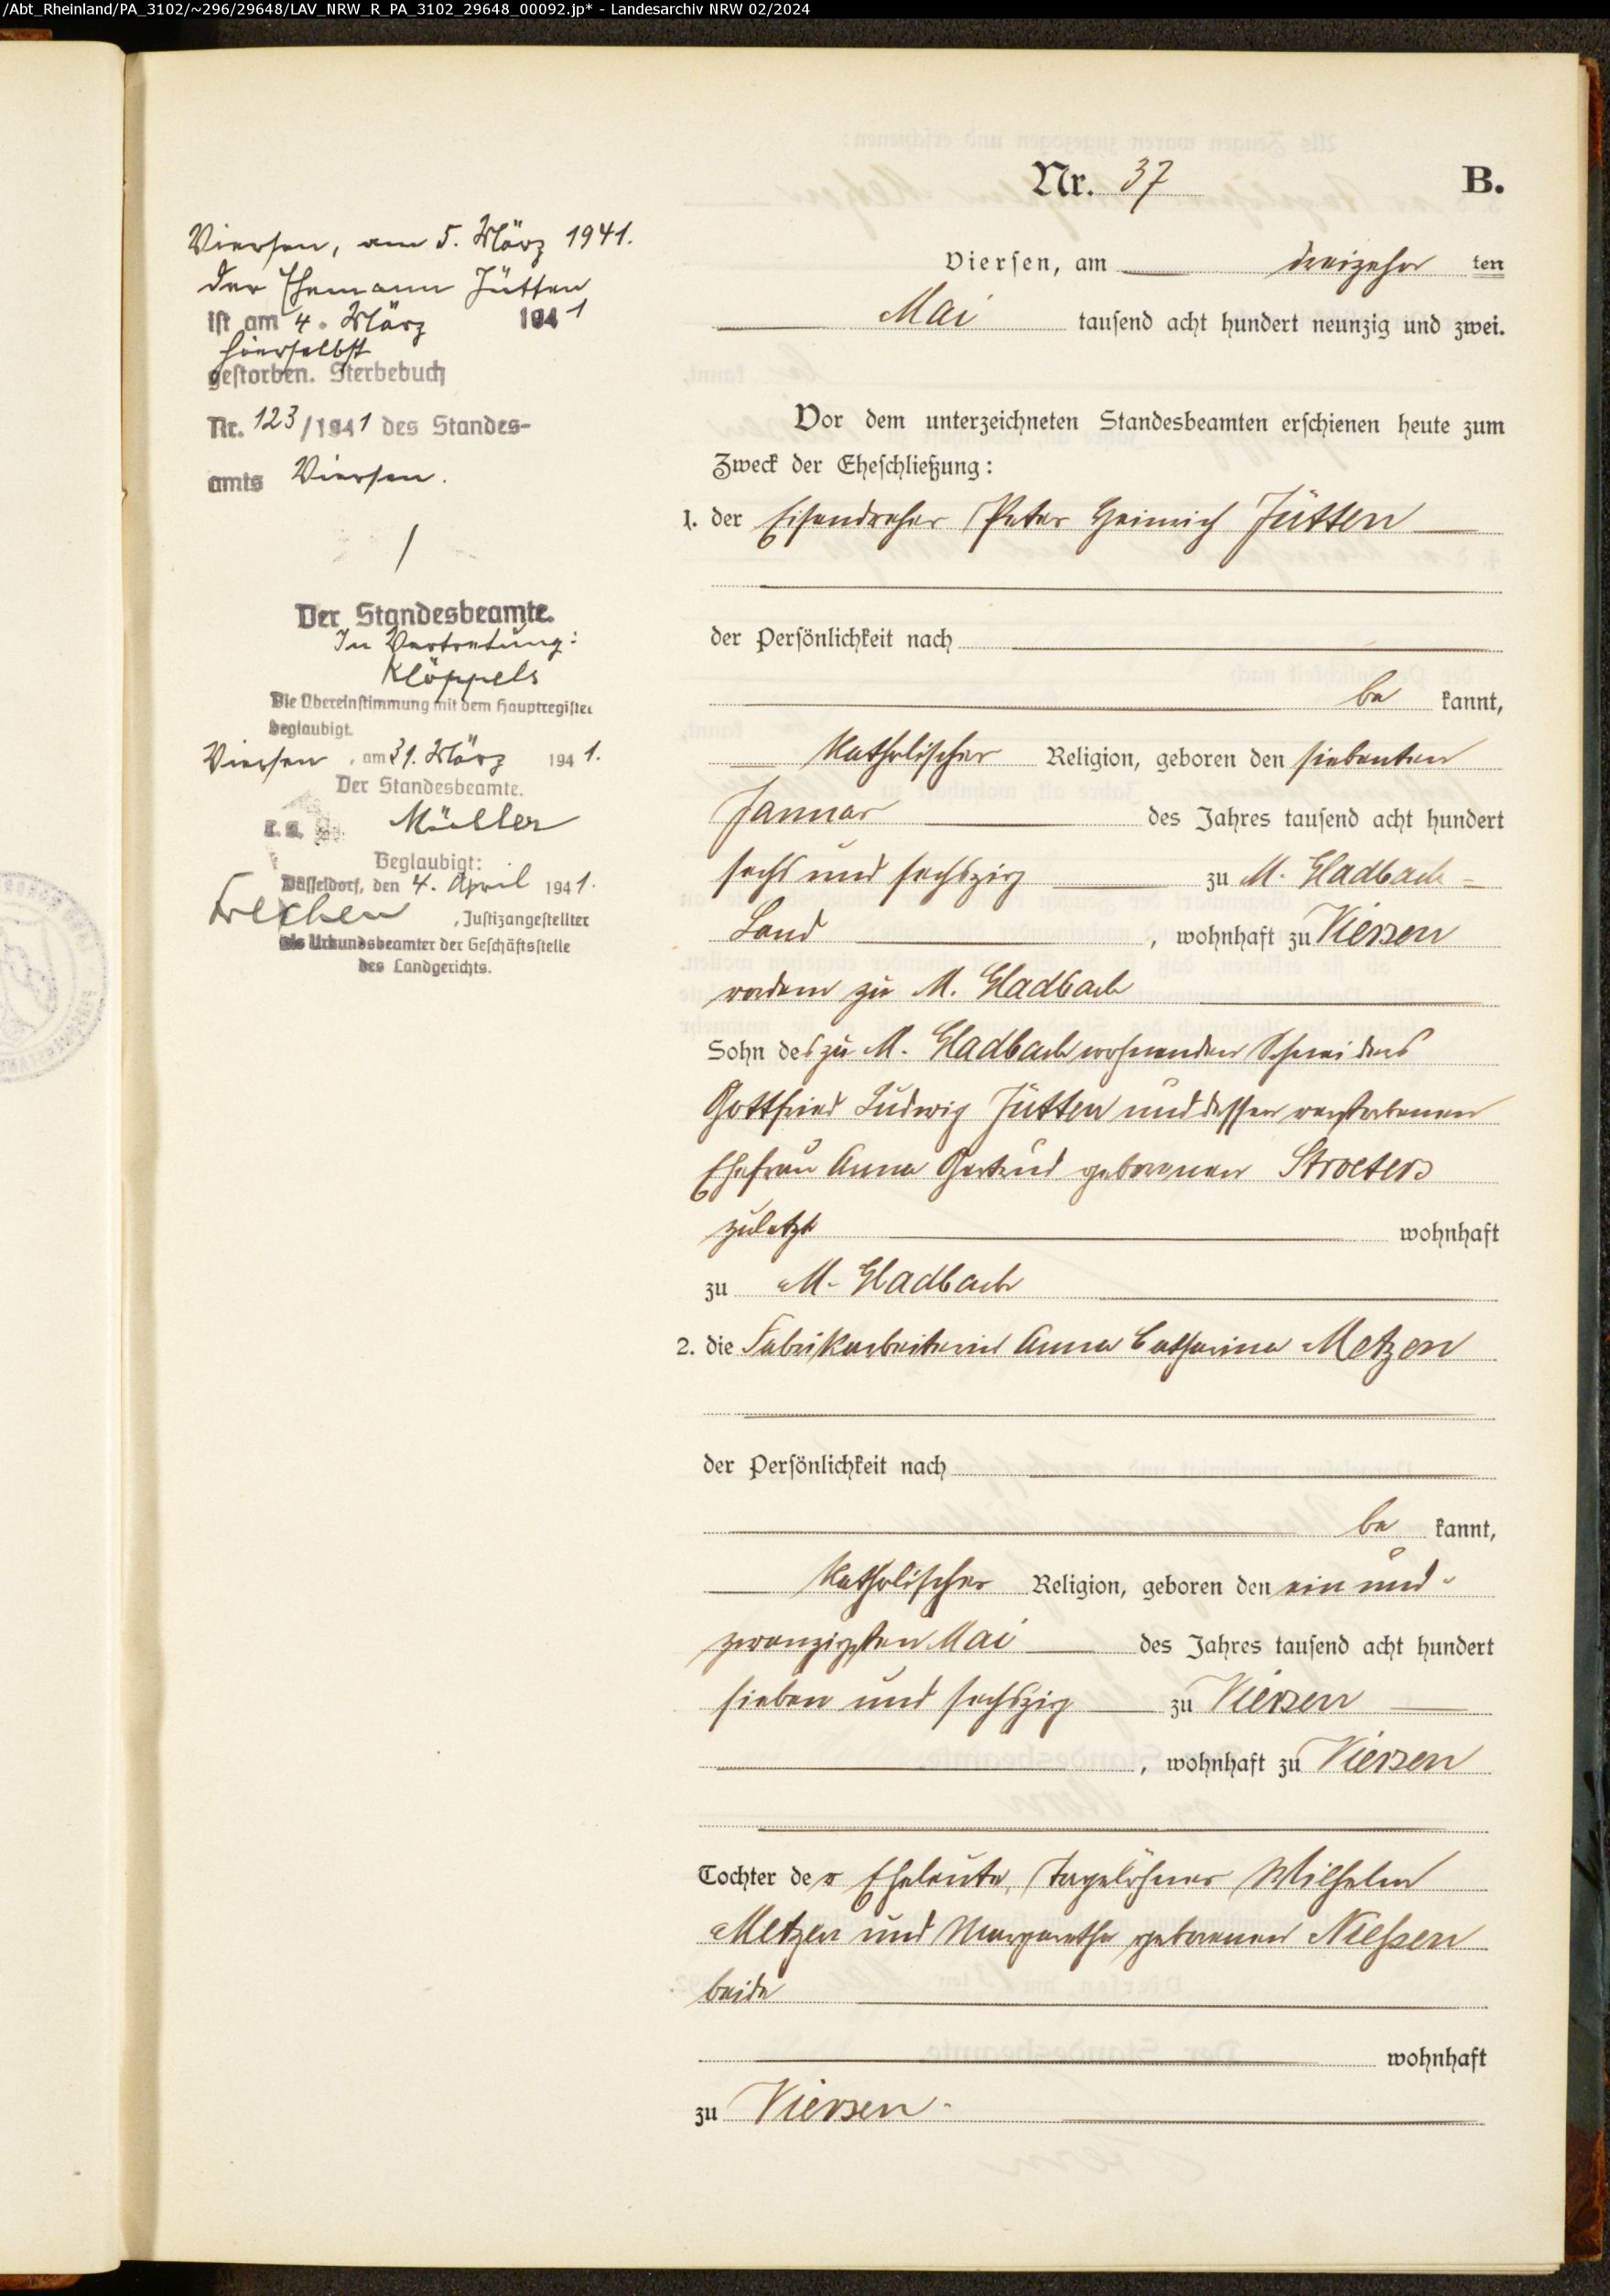 /Abt_Rheinland/PA_3102/~296/29648/LAV_NRW_R_PA_3102_29648_00092.jp* - Landesarchiv NRW 02/2024
Nr. 37 B.
Viersen, am dreizehn ten
Mai tausend acht hundert neunzig und zwei.
Vor dem unterzeichneten Standesbeamten erschienen heute zum
Zweck der Eheschließung:
1. der Eisendreher Peter Heinrich Jütten
der Persönlichkeit nach
be kannt,
katholischer Religion, geboren den siebenten
Januar des Jahres tausend acht hundert
sechs und sechszig zu M. Gladbach-
Land, wohnhaft zu Viersen
vordem zu M. Gladbach
Sohn des zu M. Gladbach wohnenden Schneiders
Gottfried Ludwig Jütten und dessen verstorbenen
Ehefrau Anna Gertrud geborenen Stroeters
zuletzt wohnhaft
zu M. Gladbach
2. die Fabrikarbeiterin Anna Catharina Metzen
der Persönlichkeit nach
be kannt,
katholischer Religion, geboren den ein und-
zwanzigsten Mai des Jahres tausend acht hundert
sieben und sechszig zu Viersen
, wohnhaft zu Viersen
Tochter der Eheleute, Tagelöhner Wilhelm
Metzen und Margaretha geborenen Nießen
beide
wohnhaft
zu Viersen.
Viersen, am 5. März 1941.
Der Ehemann Jütten
ist am 4. März 1941
hierselbst
gestorben. Sterbebuch
Nr. 123/1941 des Standes-
amts Viersen.
Der Standesbeamte.
In Vertretung:
Klöppels
Die Übereinstimmung mit dem Hauptregister
beglaubigt.
Viersen, am 31. März 1941.
Der Standesbeamte.
Müller
Beglaubigt:
Düsseldorf, den 4. April 1941.
Frechen, Justizangestellter
als Urkundsbeamter der Geschäftsstelle
des Landgerichts.